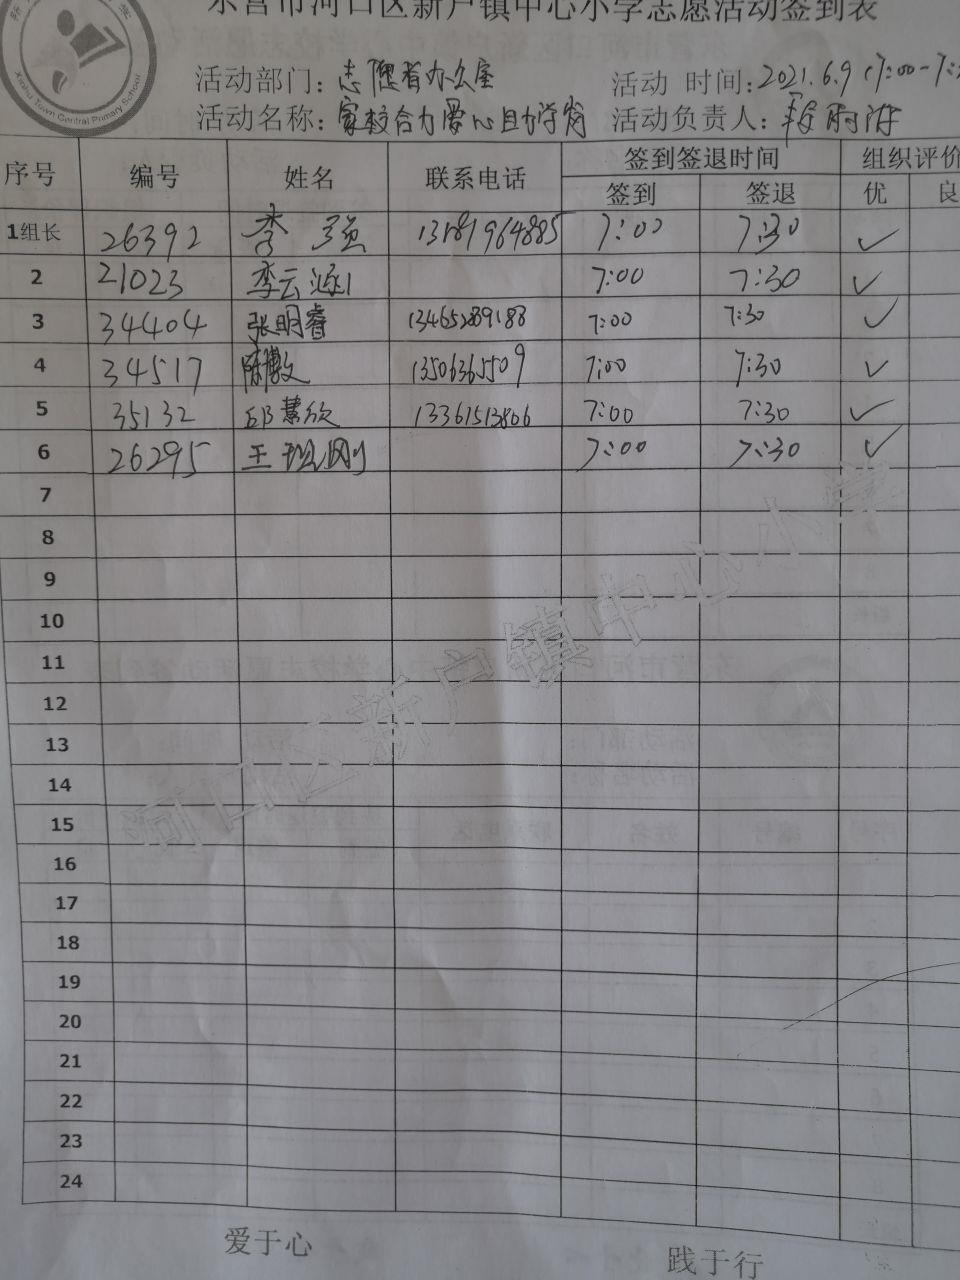 东营市河口区新户镇中心小学志愿活动签到表
Xinhu Town Central Primary School
活动部门：志愿者办公室 活动 时间：2021.6.9 (7:00-7:
活动名称：家校合力爱心助学岗 活动负责人：
序号 编号 姓名 联系电话 签到签退时间 组织评价
签到 签退 优 良
1组长 26392 李强 13181964885 7:00 7:30 ✓
2 21023 李云 7:00 7:30 ✓
3 34404 张明睿 13465289188 7:00 7:30 ✓
4 34517 陈 13506365509 7:00 7:30 ✓
5 35132 邱慧欣 13361513806 7:00 7:30 ✓
6 26295 王 刚 7:00 7:30 ✓
7
8
9
10
11
12
13
14
15
16
17
18
19
20
21
22
23
24
河口区新户镇中心小学
爱于心 践于行